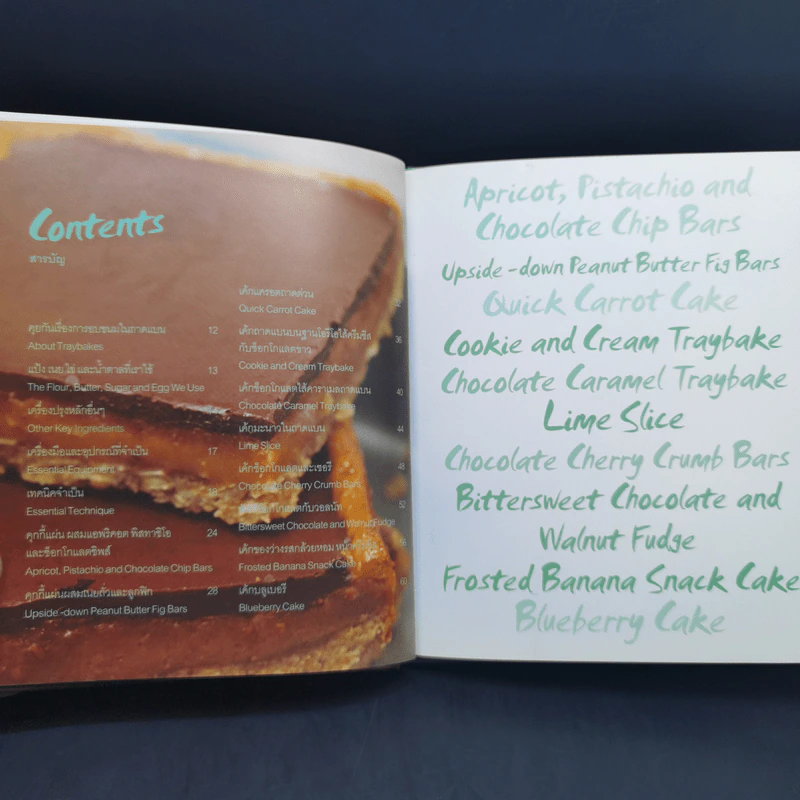 Contents
สารบัญ
คุยกันเรื่องการอบขนมในถาดแบน 12
About Traybakes
แป้ง เนย ไข่ และน้ำตาลที่เราใช้ 13
The Flour, Butter, Sugar and Egg We Use
เครื่องปรุงหลักอื่นๆ
Other Key Ingredients
เครื่องมือและอุปกรณ์ที่จำเป็น 17
Essential Equipment
เทคนิคจำเป็น
Essential Technique
คุกกี้แผ่น ผสมแอพริคอต พิสทาชิโอ 24
และช็อกโกแลตชิพส์
Apricot, Pistachio and Chocolate Chip Bars
คุกกี้แผ่นผสมเนยถั่วและลูกฟิก 28
Upside-down Peanut Butter Fig Bars
เค้กแครอตถาดด่วน
Quick Carrot Cake
เค้กถาดแบนบนฐานโอรีโอไส้ครีมชีส 36
กับช็อกโกแลตขาว
Cookie and Cream Traybake
เค้กช็อกโกแลตไส้คาราเมลถาดแบน 40
Chocolate Caramel Traybake
เค้กมะนาวในถาดแบน 44
Lime Slice
เค้กช็อกโกแลตและเชอรี 48
Chocolate Cherry Crumb Bars
52
Bittersweet Chocolate and Walnut Fudge
เค้กของว่างรสกล้วยหอม
Frosted Banana Snack Cake
เค้กบลูเบอรี 60
Blueberry Cake
Apricot, Pistachio and
Chocolate Chip Bars
Upside-down Peanut Butter Fig Bars
Quick Carrot Cake
Cookie and Cream Traybake
Chocolate Caramel Traybake
Lime Slice
Chocolate Cherry Crumb Bars
Bittersweet Chocolate and
Walnut Fudge
Frosted Banana Snack Cake
Blueberry Cake